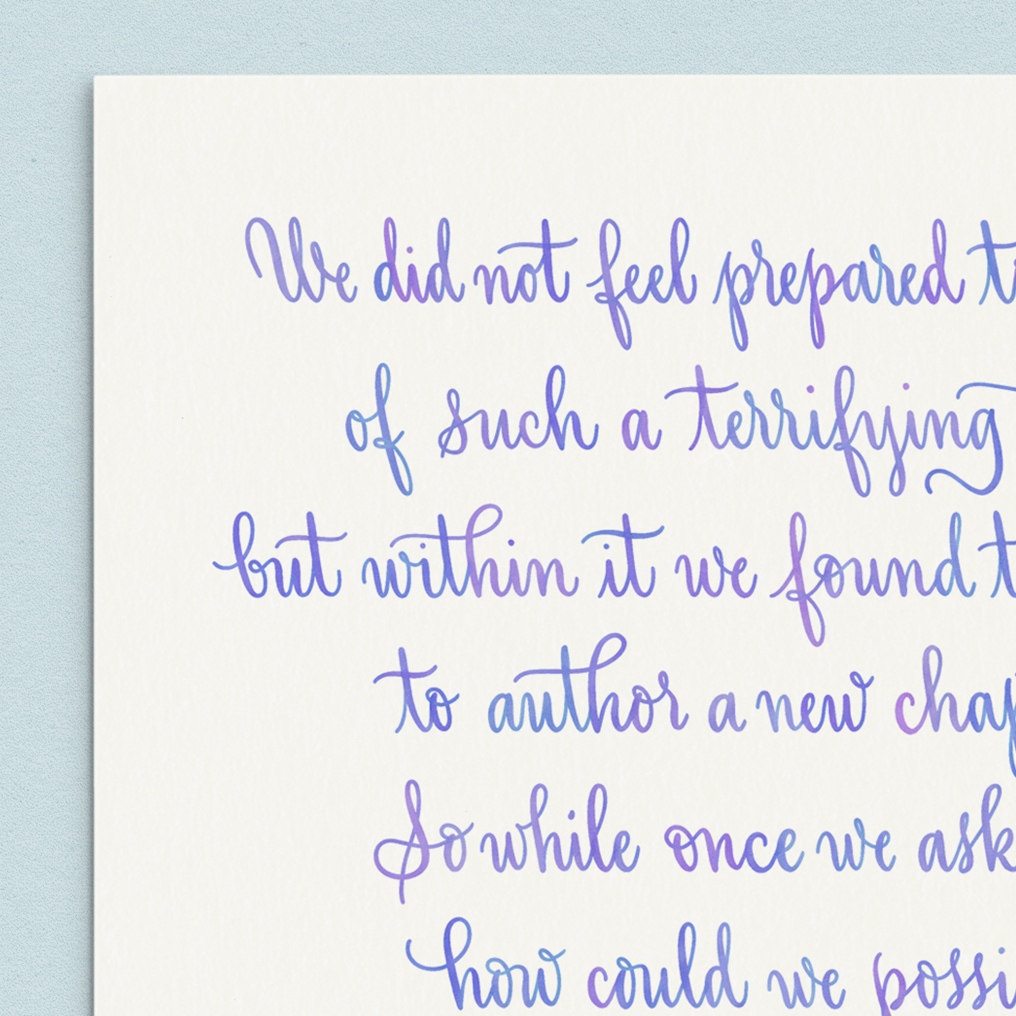 We did not feel prepared t
of such a terrifying
but within it we found t
to author a new chap
So while once we ask
how could we possi